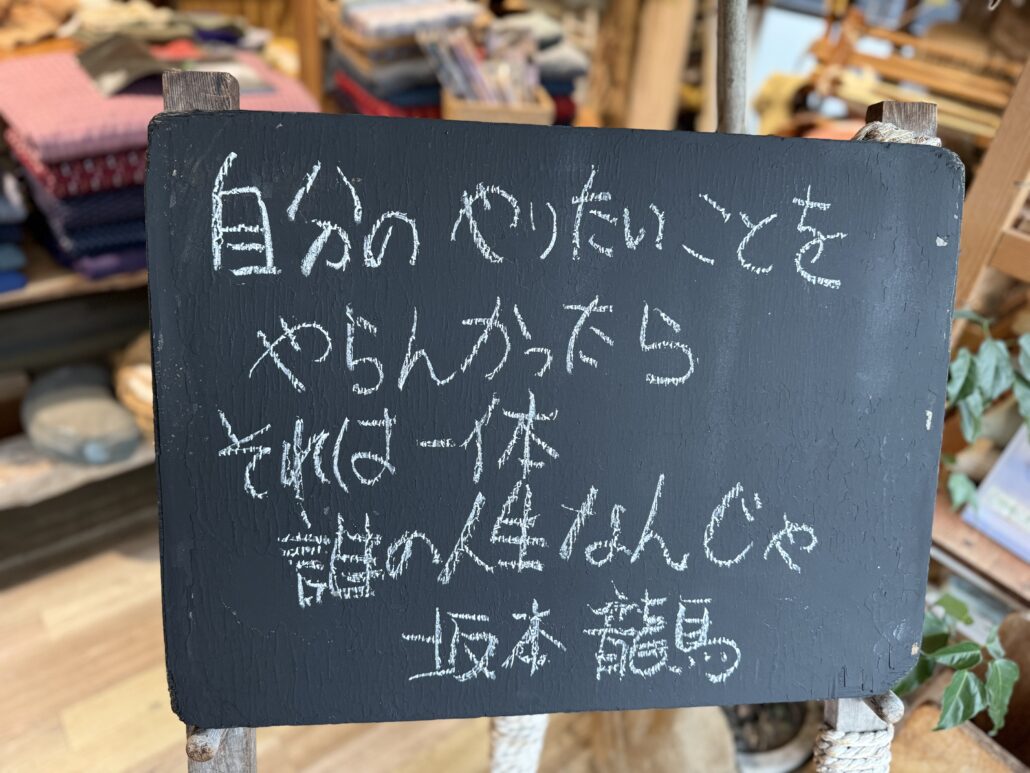 自分の やりたいことを
やらんかったら
それは一体
誰の人生なんじゃ
坂本 龍馬